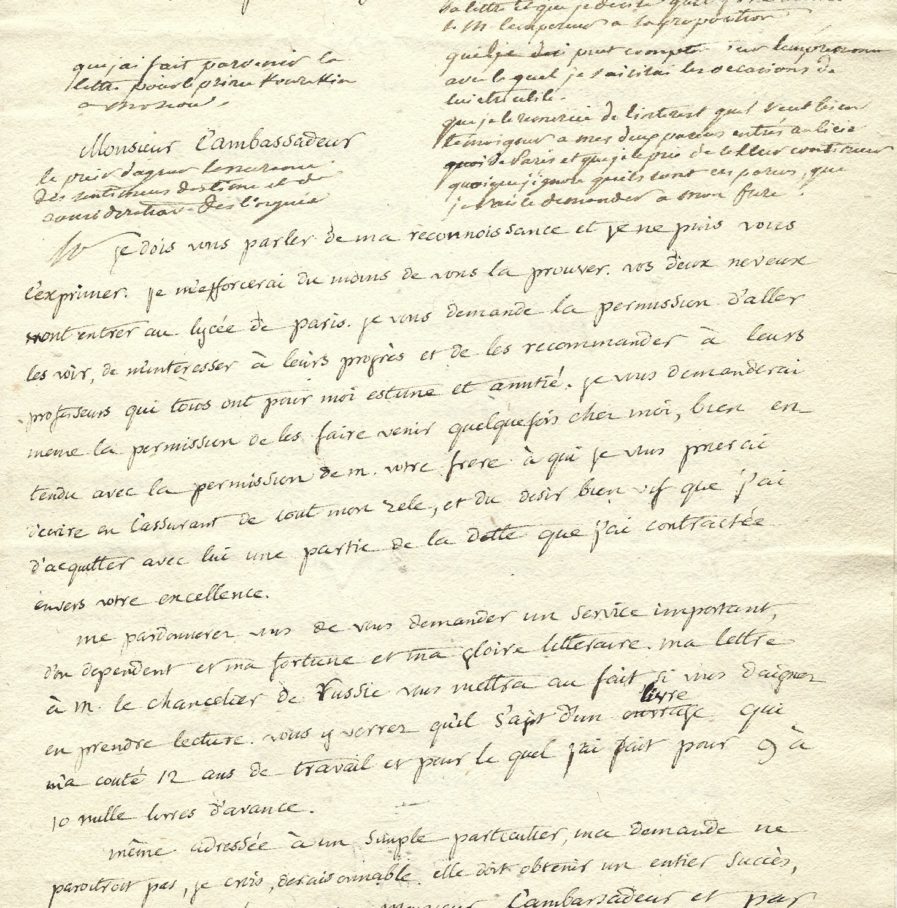 que j'ai fait parvenir la
lettre pour le prince Kourakin
a moscou.
Monsieur l'ambassadeur
le prier d'agreer
des sentimens d'estime et de
consideration
la lettre et que je
S. M. l'empereur a la proposition
peut compter sur l'empressement
avec lequel je saisirai les occasions de
lui etre utile.
que je le remercie de l'interest quil veut bien
temoigner a mes deux parens entrés au licée
de Paris et que je le prie de le leur continuer
quoique j'ignore quils sont ces parens, que
je vais le demander a mon frere.
je dois vous parler de ma reconnoissance et je ne puis vous
l'exprimer. je m'efforcerai du moins de vous la prouver. vos deux neveux
vont entrer au lycée de paris. je vous demande la permission d'aller
les voir, de m'intéresser à leurs progrès et de les recommander à leurs
professeurs qui tous ont pour moi estime et amitié. je vous demanderai
meme la permission de les faire venir quelquefois chez moi, bien en
tendu avec la permission de m. votre frere à qui je vous prierai
d'ecrire en l'assurant de tout mon zele, et du desir bien vif que j'ai
d'acquitter avec lui une partie de la dette que j'ai contractée
envers votre excellence.
me pardonnerez vous de vous demander un service important,
d'ou dependent et ma fortune et ma gloire litteraire. ma lettre
à m. le chancelier de Russie vous mettra au fait si vous daignez
en prendre lecture. vous y verrez qu'il s'agit d'un ouvrage livre qui
m'a couté 12 ans de travail et pour le quel j'ai fait pour 9 à
10 mille livres d'avance.
même adressée à un simple particulier, ma demande ne
paroitroit pas, je crois, deraisonnable. elle doit obtenir un entier succès,
Monsieur l'ambassadeur et par